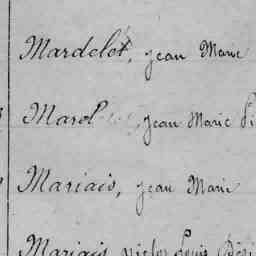 Mardelet, Jean Marie
Marol, Jean Marie
Mariais, Jean Marie
Mariais, Victor Louis